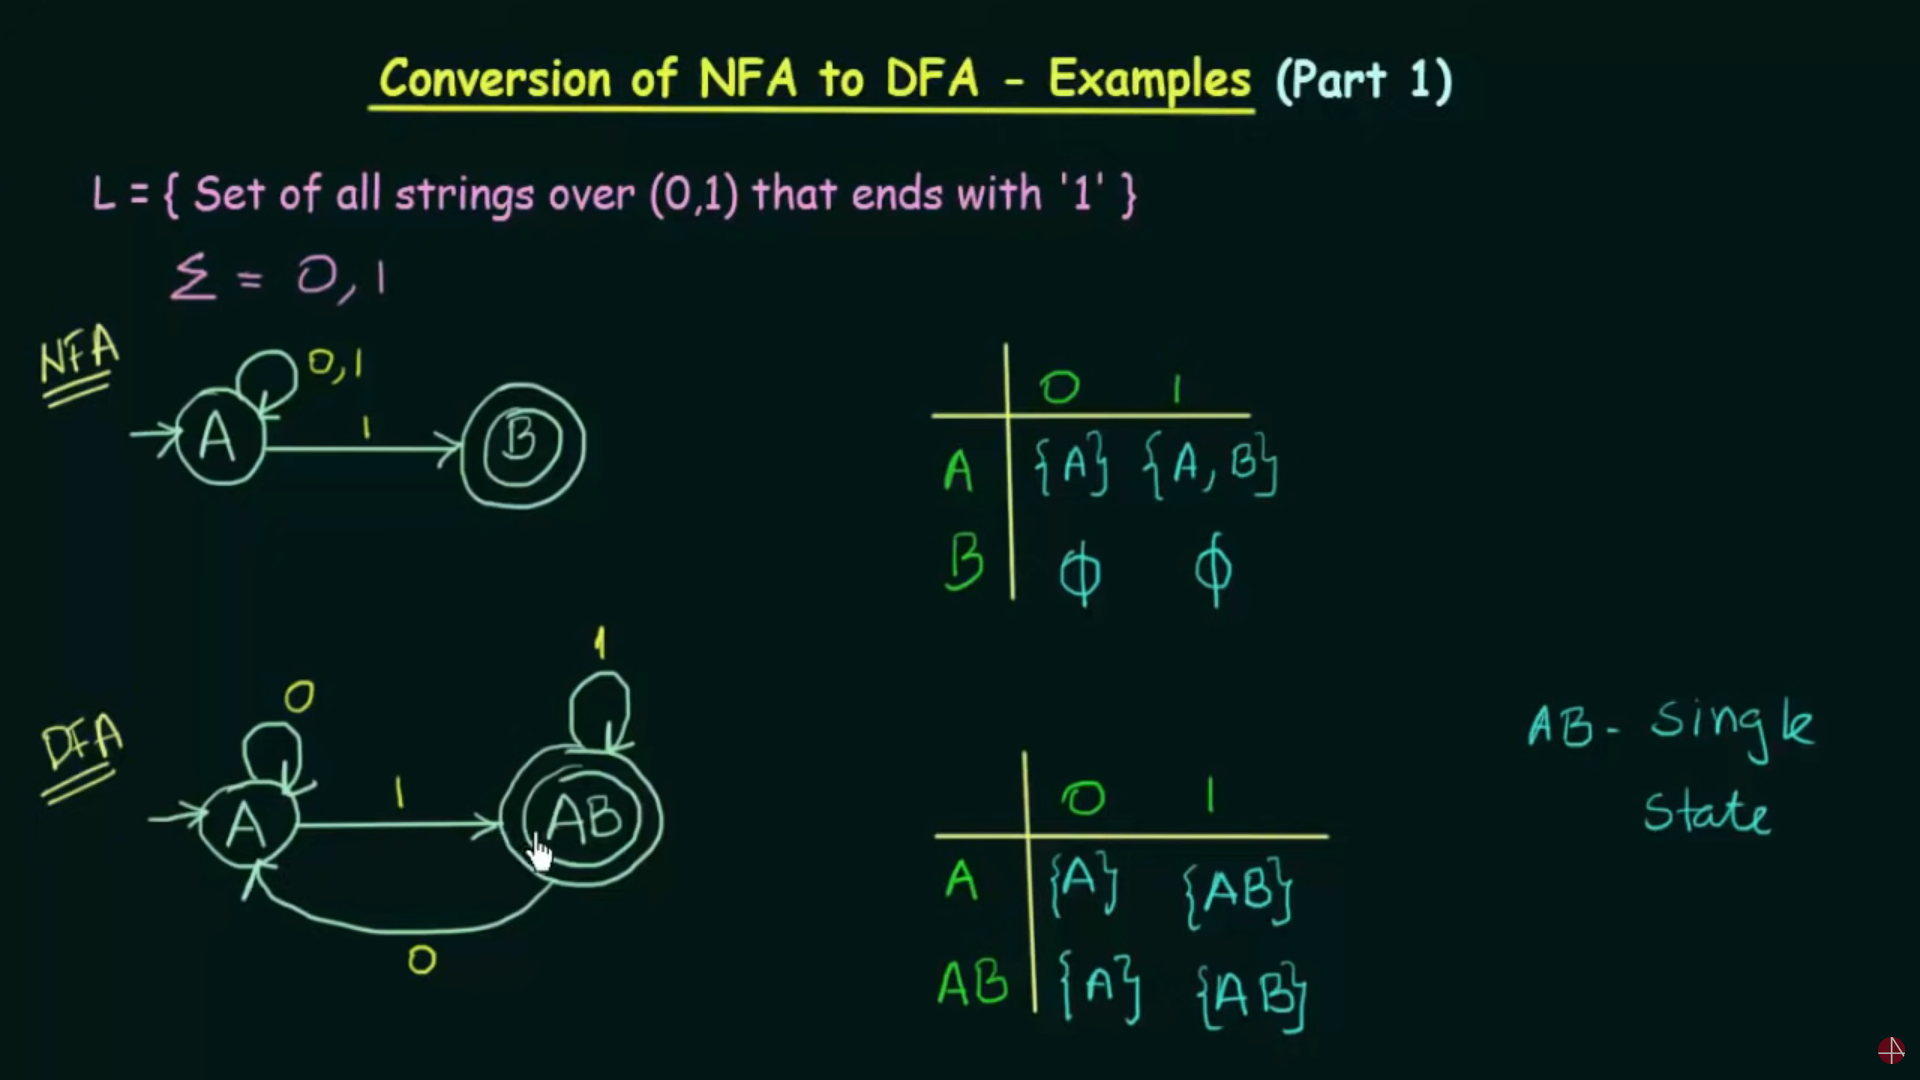 Conversion of NFA to DFA - Examples (Part 1)
L = { Set of all strings over (0,1) that ends with '1' }
Σ = 0, 1
NFA
0,1
A
1
B
0 1
A {A} {A, B}
B ϕ ϕ
DFA
0
1
A
1
AB
0
0 1
A {A} {AB}
AB {A} {AB}
AB - Single
State